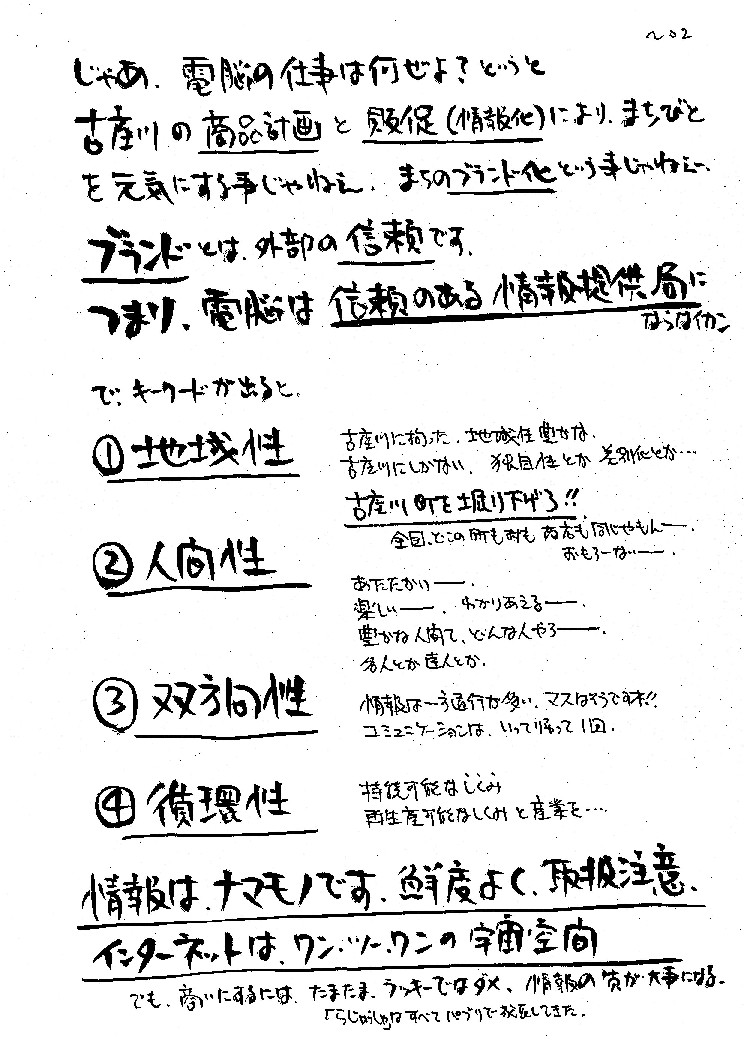 no2
じゃあ、電脳の仕事は何ぜよ？というと
古座川の商品計画と販促（情報化）により、まちびと
を元気にする事じゃねぇ、まちのブランド化という事じゃねぇ〜、
ブランドとは、外部の信頼です。
つまり、電脳は信頼のある情報提供局に
ならなイカン
で、キーワードが出ると、
①地域性
古座川に拘った、地域性豊かな、
古座川にしかない、独自性とか差別化とか…
古座川町を掘り下げろ!!
全国、どこの町も村もお店も同じやもんー、
おもろーないー、
②人間性
あたたかいー、
楽しいー、わかりあえるー、
豊かな人間て、どんな人やろー、
名人とか達人とか、
③双方向性
情報は一方通行が多い、マスはそうですネ!!
コミュニケーションは、いって帰って1回、
④循環性
持続可能なしくみ
再生産可能なしくみと産業を…
情報は、ナマモノです、鮮度よく、取扱注意、
インターネットは、ワン・ツー・ワンの宇宙空間
でも、商いにするには、たまたま、ラッキーではダメ、情報の質が大事になる。
はすべてパブリで
してきた。